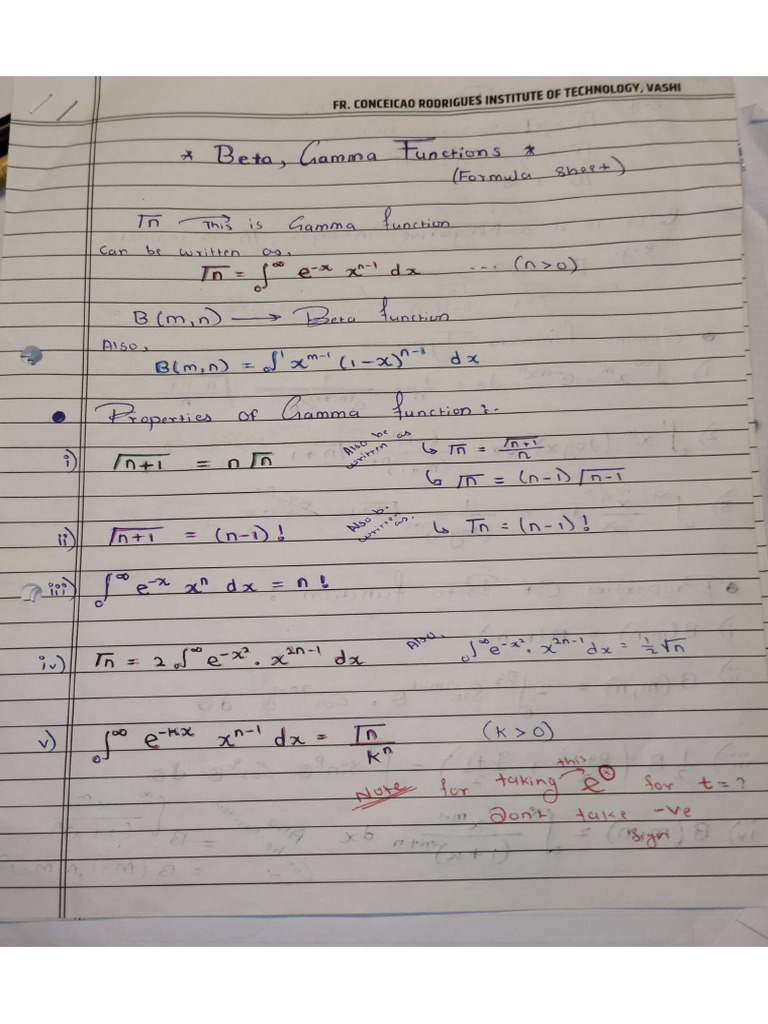 FR. CONCEICAO RODRIGUES INSTITUTE OF TECHNOLOGY, VASHI
* Beta, Gamma Functions *
(Formula sheet)
Γn → This is Gamma function
Can be written as,
Γn = ₀∫^∞ e^-x x^n-1 dx ... (n>0)
B(m,n) → Beta function
Also,
B(m,n) = ₀∫^1 x^m-1 (1-x)^n-1 dx
• Properties of Gamma function:-
i) Γn+1 = nΓn Also be written as ↳ Γn = Γn+1/n
↳ Γn = (n-1) Γn-1
ii) Γn+1 = (n-1)! Also be written as. ↳ Γn = (n-1)!
iii) ₀∫^∞ e^-x x^n dx = n!
iv) Γn = 2 ₀∫^∞ e^-x². x^2n-1 dx Also, ₀∫^∞ e^-x². x^2n-1 dx = 1/2 Γn
v) ₀∫^∞ e^-kx x^n-1 dx = Γn/k^n (k>0)
Note for taking this → e^○ for t = ?
Don't take -ve
sign